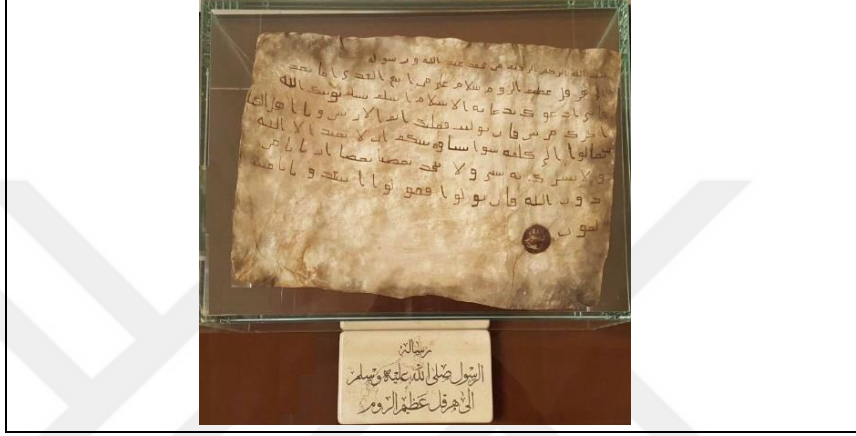 بسم الله الرحمن الرحيم من محمد عبد الله و رسوله
الى هرقل عظيم الروم سلام على من اتبع الهدى اما بعد
فاني ادعوك بدعاية الاسلام اسلم تسلم يوتك الله
اجرك مرتين فان توليت فعليك اثم الاريسين ويا اهل الكتا
تعالوا الى كلمة سوا بيننا وبينكم ان لا نعبد الا الله
ولا نشرك به شي ولا يتخذ بعضنا بعضا اربابا من
دون الله فان تولوا فقولوا اشهدو بانا مسـ
لمون
رسالة
الرسول صلى الله عليه وسلم
الى هرقل عظيم الروم